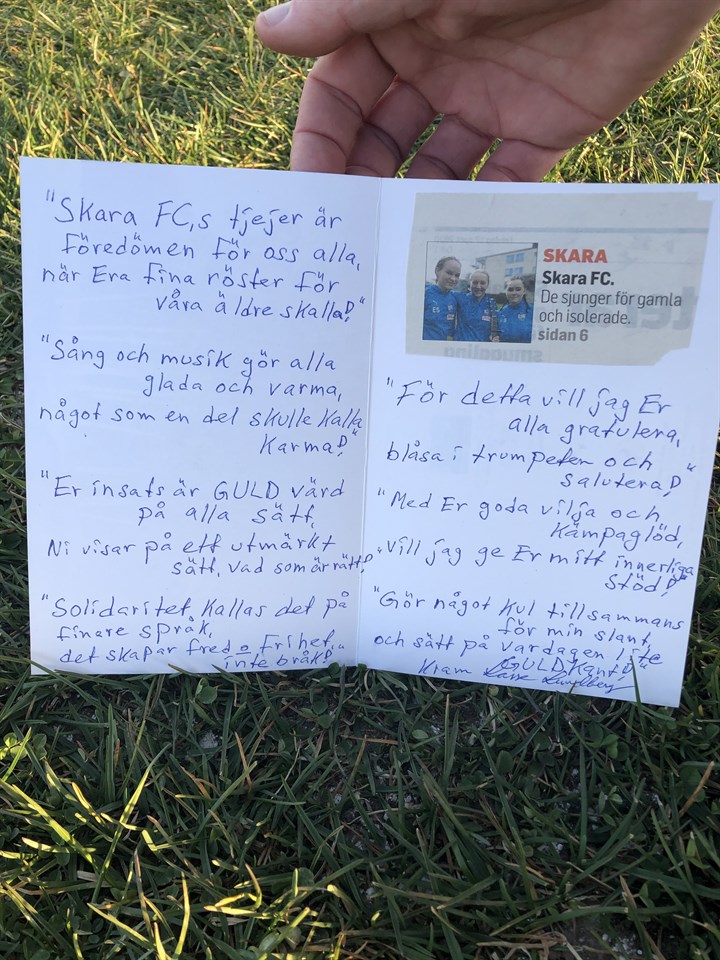 "Skara FC,s tjejer är
föredömen för oss alla,
när Era fina röster för
våra äldre skalla!"
"Sång och musik gör alla
glada och varma,
något som en del skulle kalla
Karma!"
"Er insats är GULD värd
på alla sätt,
Ni visar på ett utmärkt
sätt, vad som är rätt!"
"Solidaritet, kallas det på
finare språk,
det skapar fred o frihet,
inte bråk!"
SKARA
Skara FC.
De sjunger för gamla
och isolerade.
sidan 6
"För detta vill jag Er
alla gratulera,
blåsa i trumpeten och
salutera!"
"Med Er goda vilja och
Kämpaglöd,
vill jag ge Er mitt innerliga
stöd!"
"Gör något kul tillsammans
för min slant,
och sätt på vardagen lite
GULDkant!"
Kram